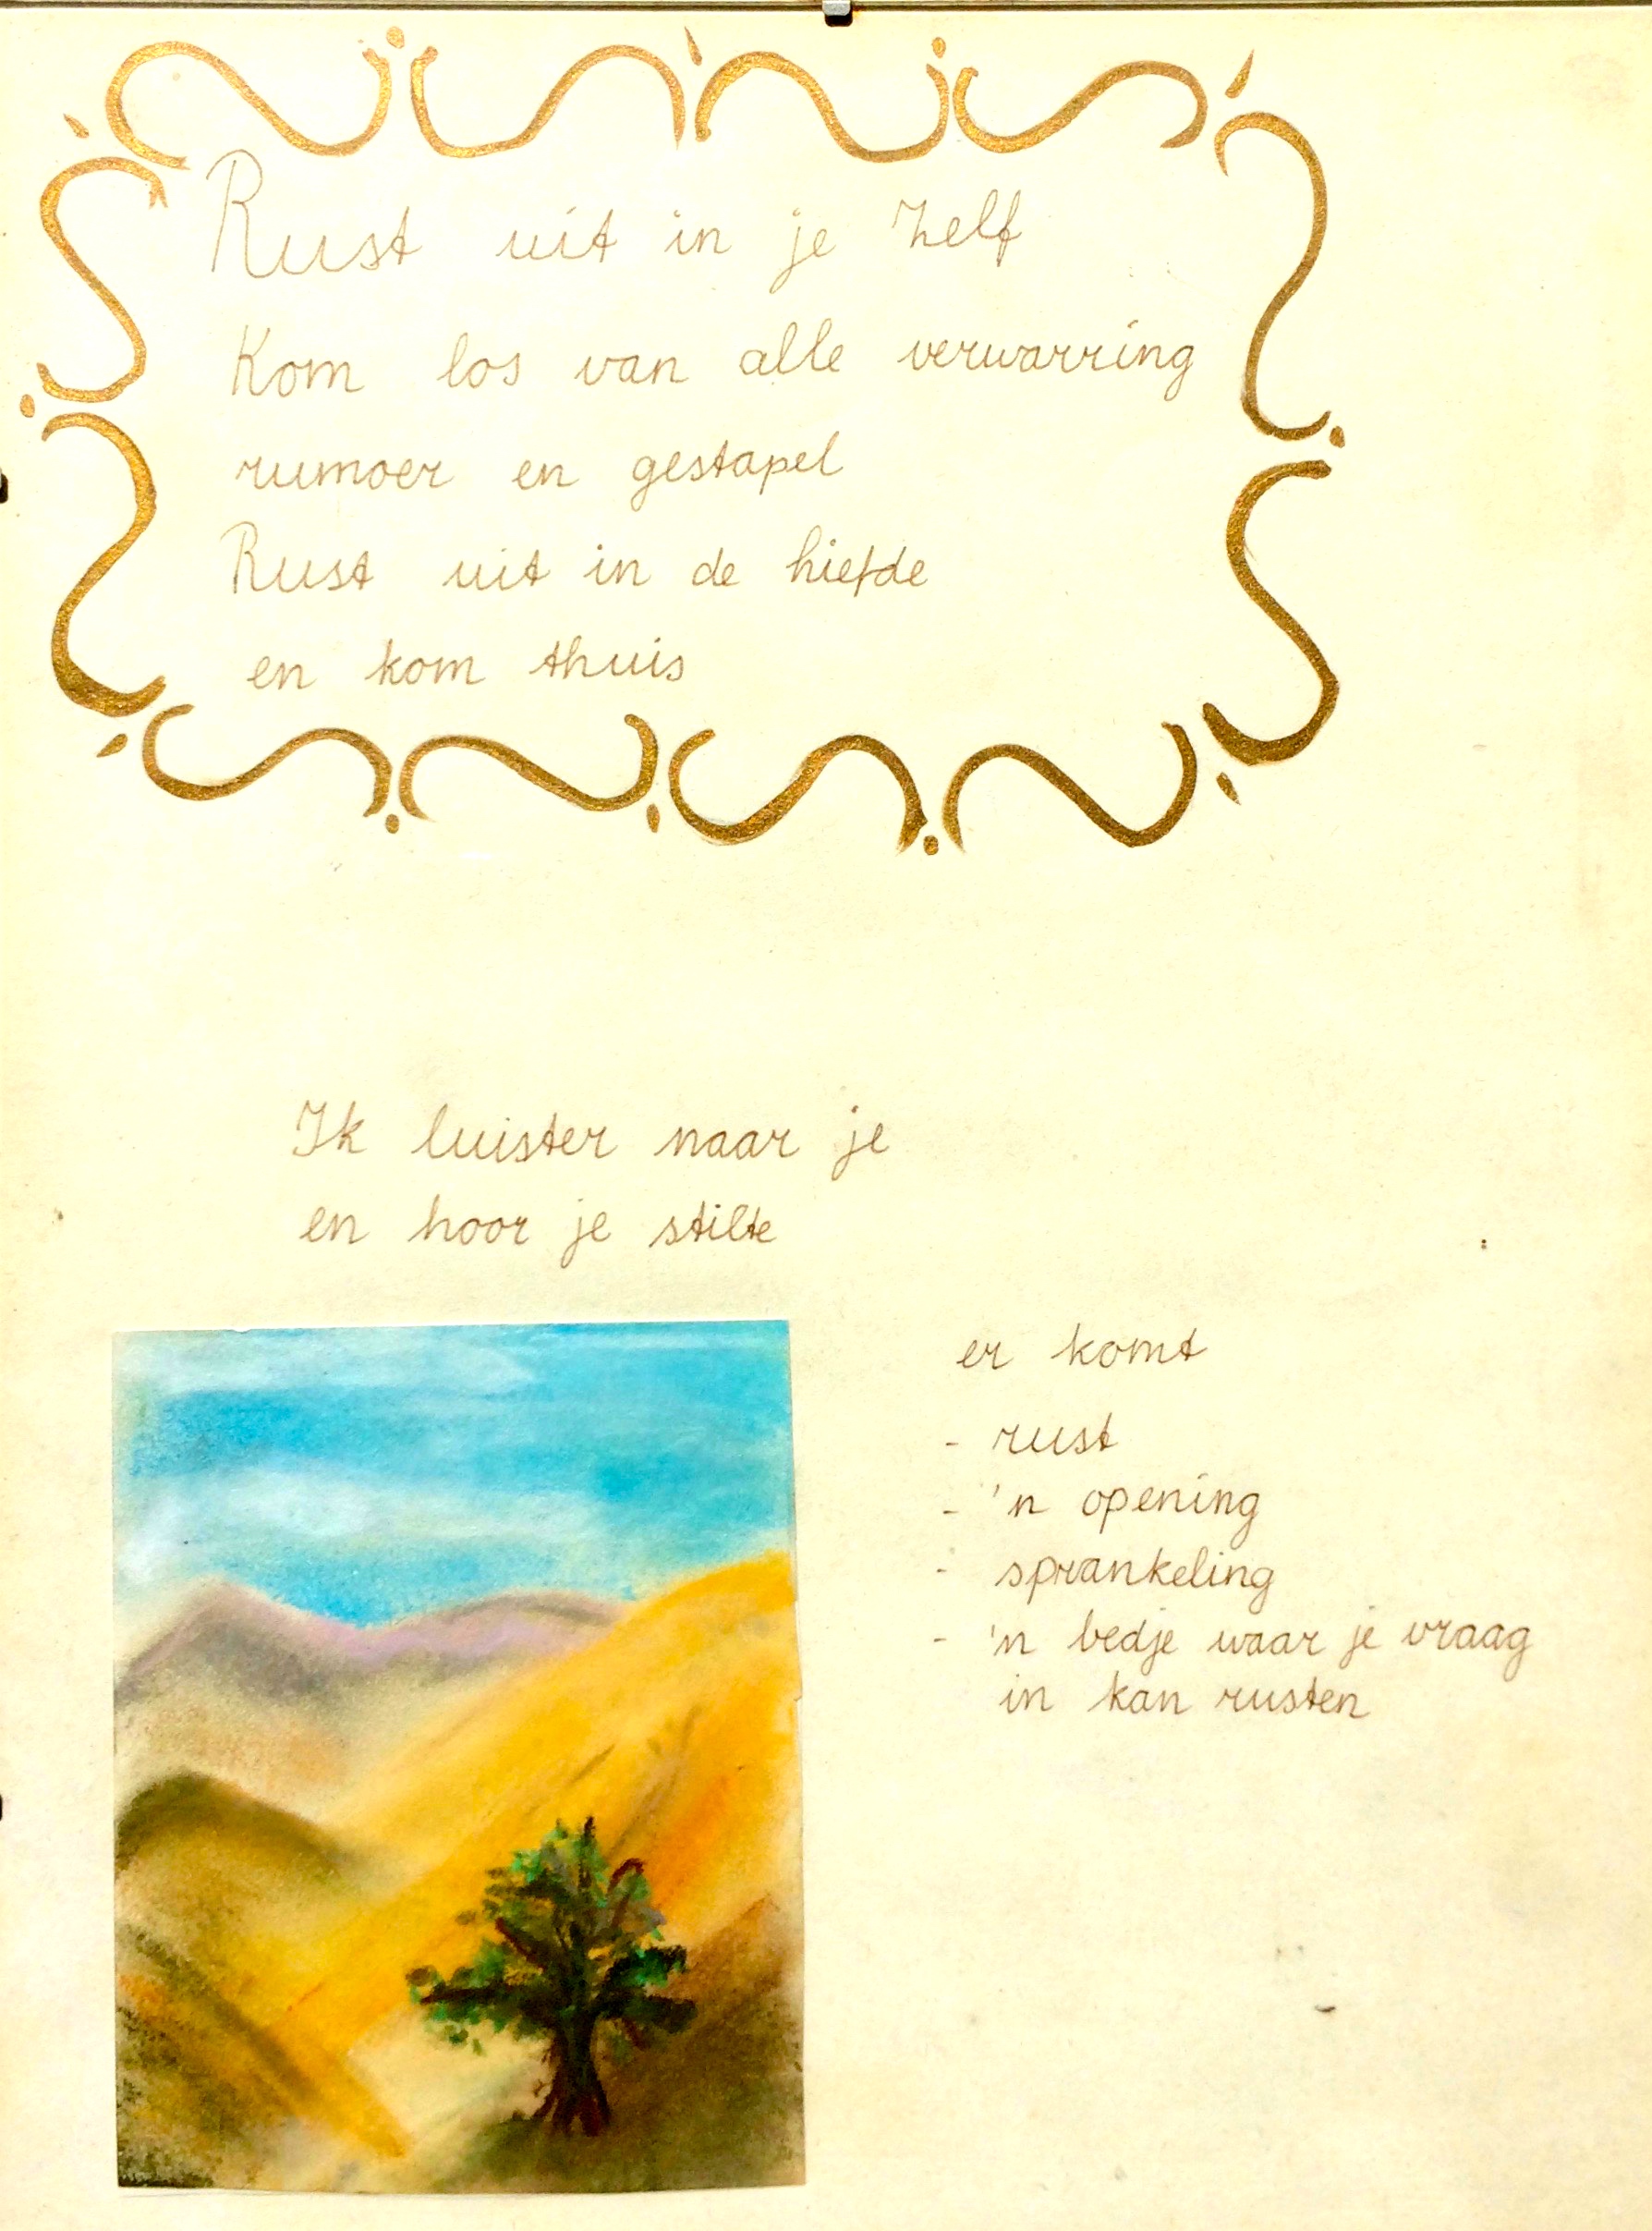 Rust uit in je Zelf
Kom los van alle verwarring
rumoer en gestapel
Rust uit in de liefde
en kom thuis
Ik luister naar je
en hoor je stilte
er komt
- rust
- 'n opening
- sprankeling
- 'n bedje waar je vraag
in kan rusten